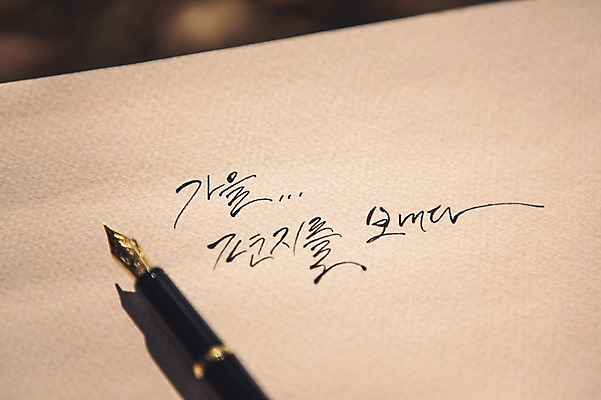 가을...
편지를 보내다